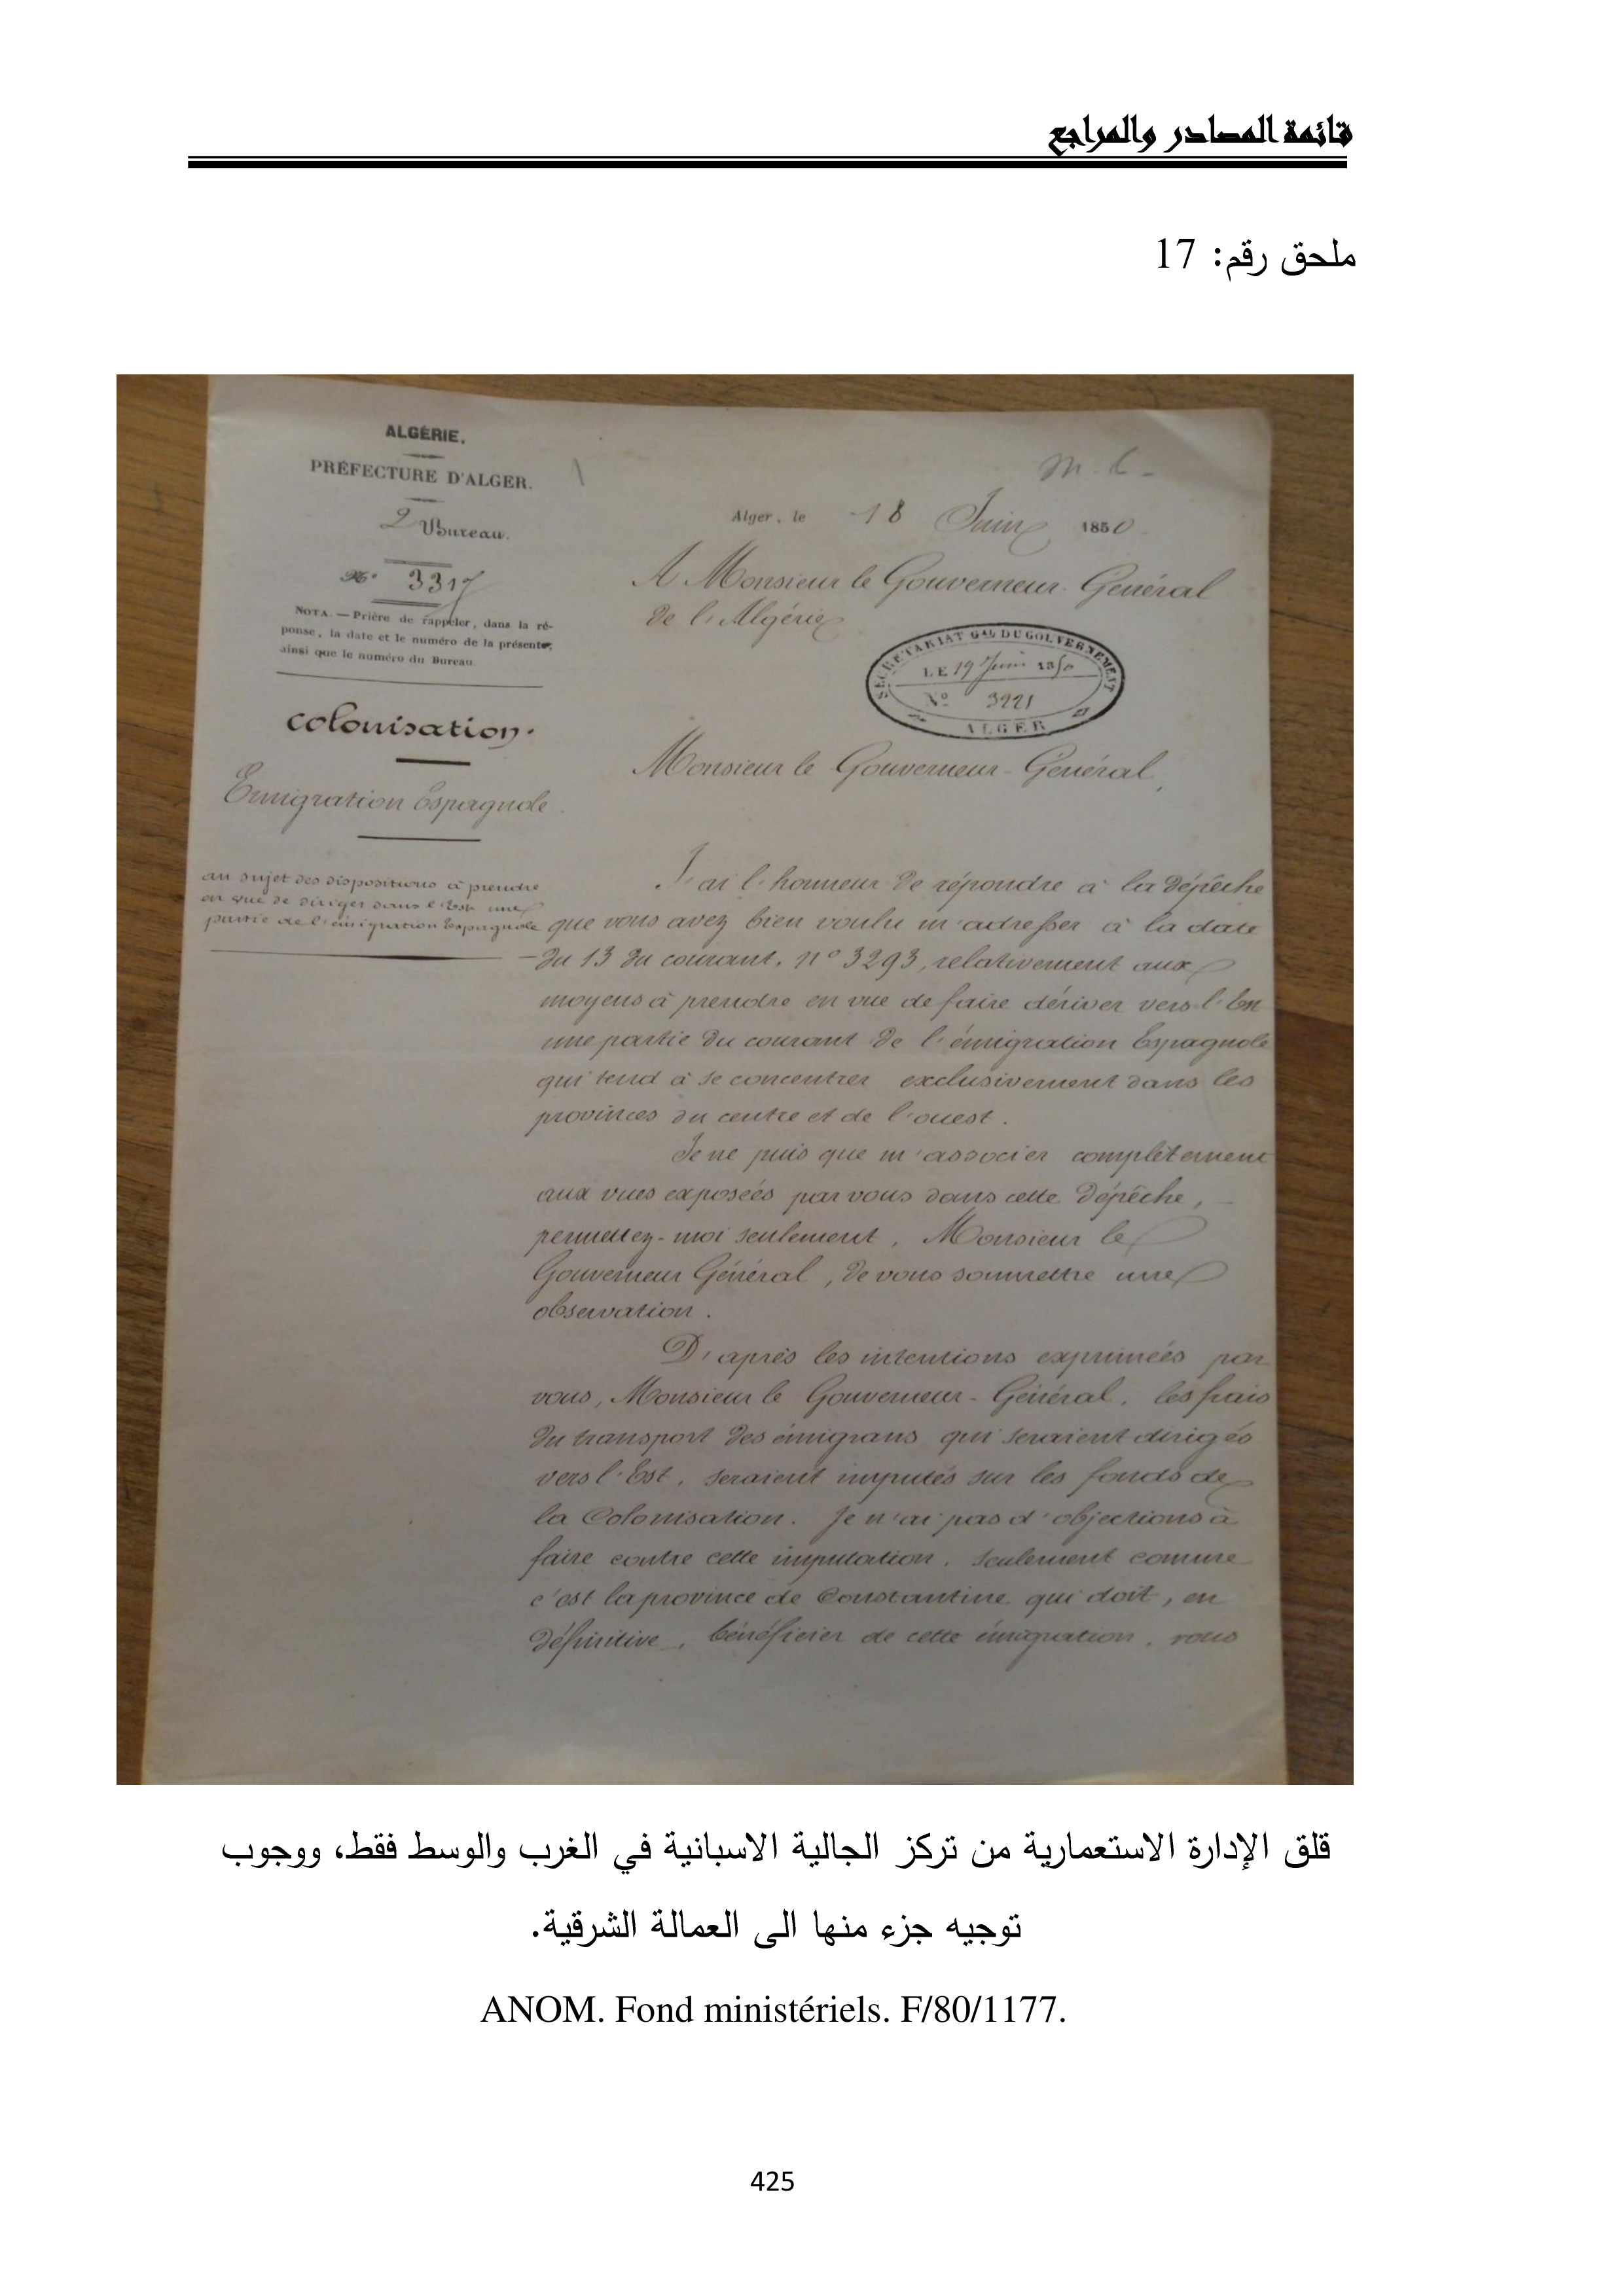 قائمة المصادر والمراجع
ملحق رقم: 17
ALGÉRIE.
PRÉFECTURE D'ALGER.
2 Bureau.
N° 3317
NOTA. — Prière de rappeler, dans la ré-
ponse, la date et le numéro de la présente,
ainsi que le numéro du Bureau.
colonisation.
Emigration Espagnole.
au sujet des dispositions à prendre
en vue de diriger dans l'Est une
partie de l'émigration Espagnole
Alger, le 18 Juin 1850
A Monsieur le Gouverneur-Général
de l'Algérie
SECRÉTARIAT GAL DU GOUVERNEMENT
LE 19 Juin 1850
N° 3221
ALGER
Monsieur le Gouverneur-Général,
J'ai l'honneur de répondre à la dépêche
que vous avez bien voulu m'adresser à la date
du 13 du courant, n° 3293, relativement aux
moyens à prendre en vue de faire dériver vers l'Est
une partie du courant de l'émigration Espagnole
qui tend à se concentrer exclusivement dans les
provinces du centre et de l'ouest.
Je ne puis que m'associer complètement
aux vues exposées par vous dans cette dépêche,
permettez-moi seulement, Monsieur le
Gouverneur Général, de vous soumettre une
observation.
D'après les intentions exprimées par
vous, Monsieur le Gouverneur-Général, les frais
du transport des émigrans qui seraient dirigés
vers l'Est, seraient imputés sur les fonds de
la Colonisation. Je n'ai pas d'objections à
faire contre cette imputation, seulement comme
c'est la province de Constantine qui doit, en
définitive, bénéficier de cette émigration, vous
قلق الإدارة الاستعمارية من تركز الجالية الاسبانية في الغرب والوسط فقط، ووجوب
توجيه جزء منها الى العمالة الشرقية.
ANOM. Fond ministériels. F/80/1177.
425